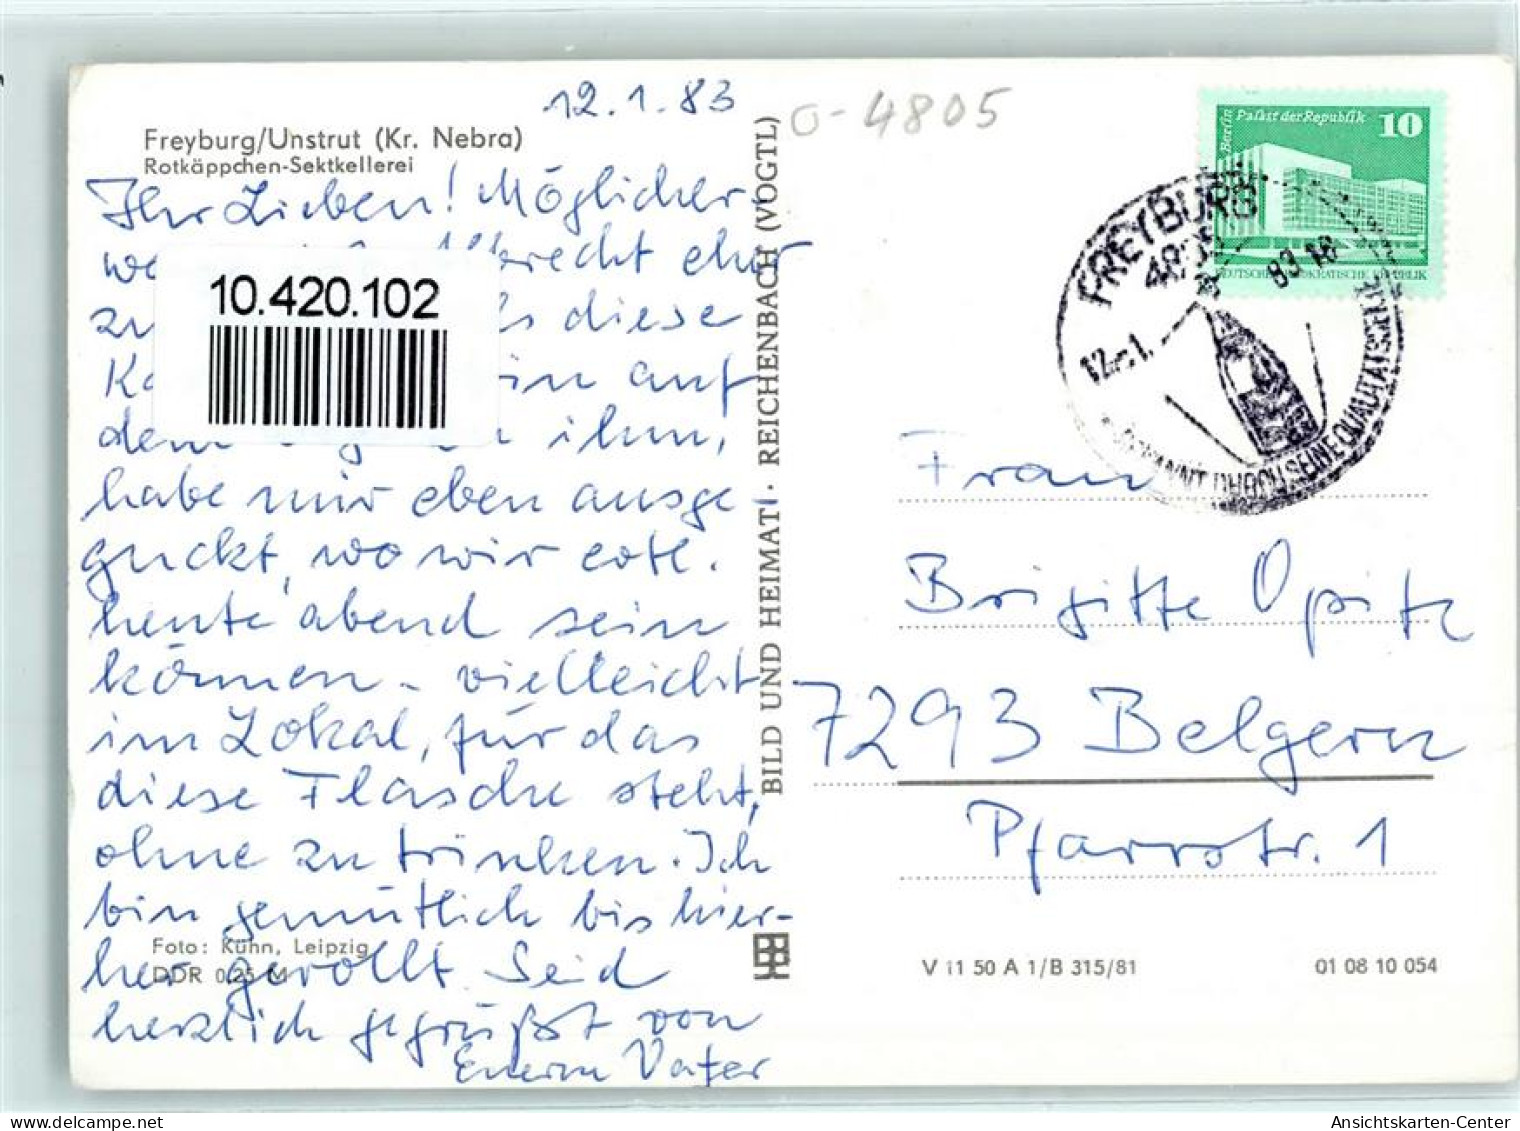 12.1.83
Freyburg/Unstrut (Kr. Nebra)
Rotkäppchen-Sektkellerei
Ihr Lieben! Möglicher-
recht eher
zu diese
auf
dem ihm,
habe mir eben ausge-
guckt, wo wir evtl.
heute abend sein
können - vielleicht
im Lokal, für das
diese Flasche steht,
ohne zu trinken. Ich
bin gemütlich bis hier-
her gerollt. Seid
herzlich gegrüßt von
Euerm Vater
10.420.102
Foto: Kühn, Leipzig
DDR 0,25 M
BILD UND HEIMAT · REICHENBACH (VOGTL)
O-4805
Berlin Palast der Republik 10
DEUTSCHE DEMOKRATISCHE REPUBLIK
FREYBURG
4805
12.-1. 83.18
BEKANNT DURCH SEINE QUALITÄTSSEKTE
Frau
Brigitte Opitz
7293 Belgern
Pfarrstr. 1
V 11 50 A 1/B 315/81
01 08 10 054
Ansichtskarten-Center